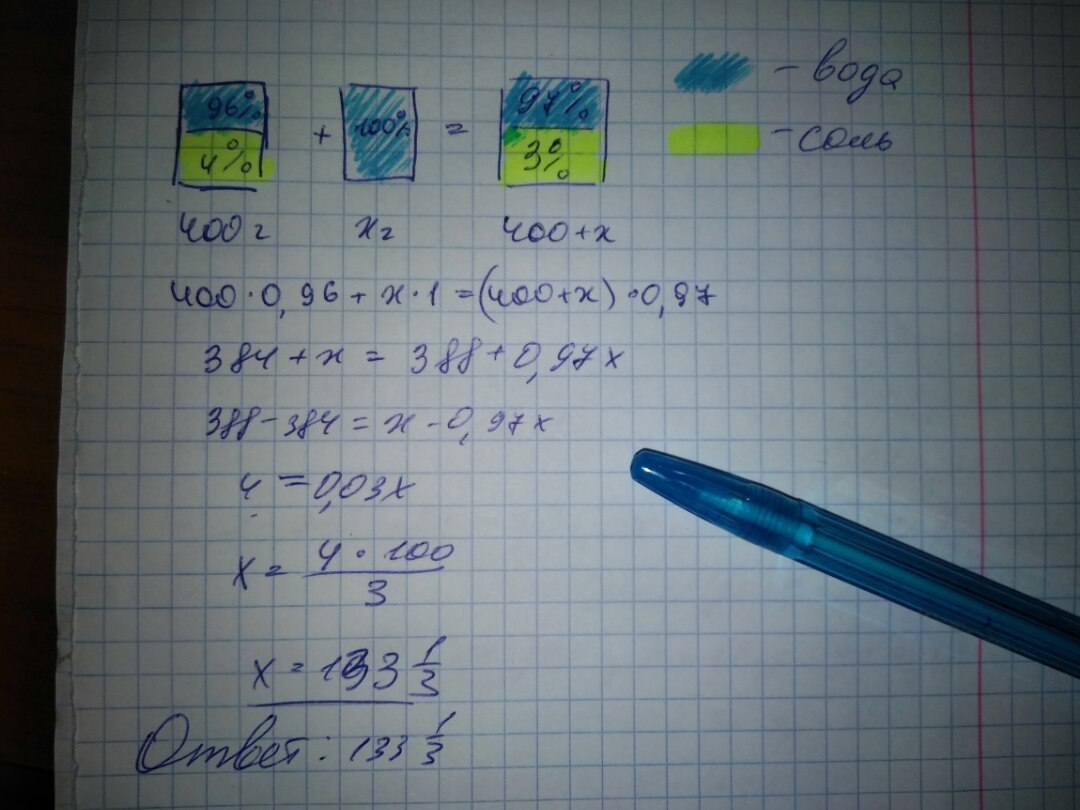 96% + 100% = 97% - вода
4% 3% - соль
400г xг 400+x
400·0,96 + x·1 = (400+x)·0,97
384 + x = 388 + 0,97x
388-384 = x - 0,97x
4 = 0,03x
x = 4·100/3
x = 133 1/3
Ответ: 133 1/3